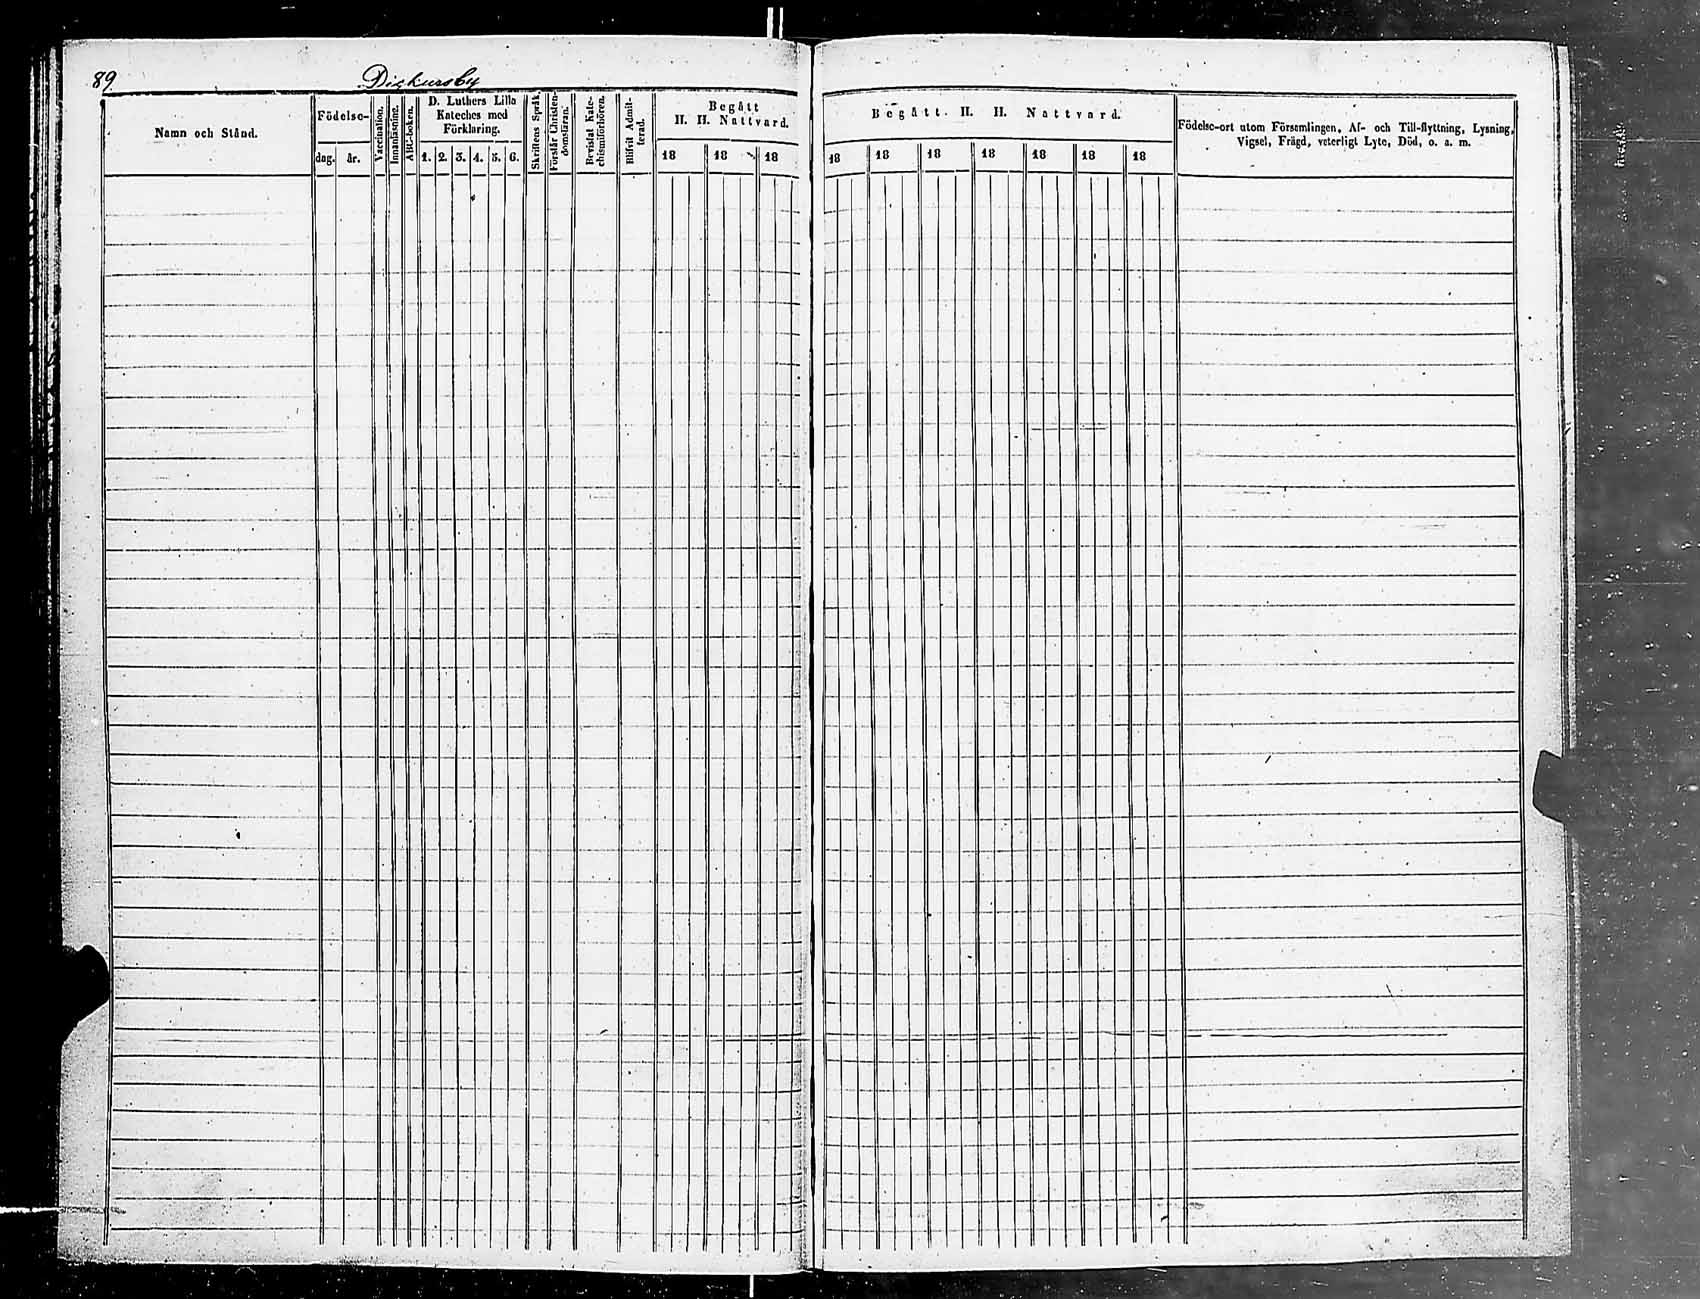 89.
Dickursby
Namn och Stånd.
Födelse-
dag. år.
Vaccination.
Innanläsning.
ABC-boken.
D. Luthers Lilla
Kateches med
Förklaring.
1. 2. 3. 4. 5. 6.
Skriftens Språk.
Förstår Christen-
domsläran.
Bevistat Kate-
chismiförhören.
Blifvit Admit-
terad.
Begått
H. H. Nattvard.
18 18 18
Begått. H. H. Nattvard.
18 18 18 18 18 18 18
Födelse-ort utom Församlingen, Af- och Till-flyttning, Lysning,
Vigsel, Frägd, veterligt Lyte, Död, o. a. m.